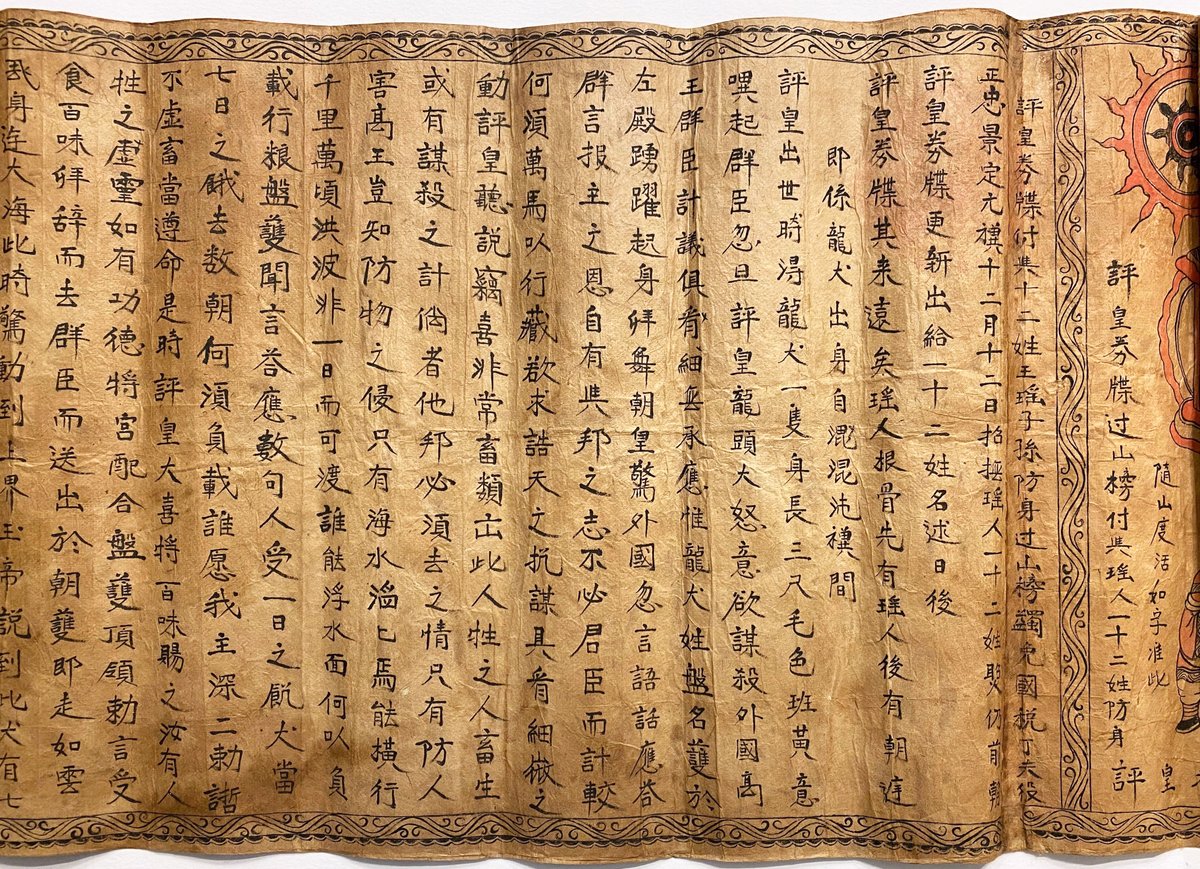 隨山度活如字准此　皇
評皇券牒过山榜付与瑶人一十二姓防身　評
評皇券牒付与十二姓王瑶子孫防身过山榜蠲免國税丁夫役
正忠景定元禩十二月十二日招撫瑶人一十二姓照仿前朝
評皇券牒更新出給一十二姓名述日後
評皇券牒其来遠矣瑶人根骨先有瑶人後有朝廷
即係龍犬出身自混混沌禩間
評皇出世時淂龍犬一隻身長三尺毛色班黄意
異起群臣忽旦評皇龍頭大怒意欲謀殺外國高
王群臣計議俱眥細無承應惟龍犬姓盤名護於
左殿踴躍起身拜舞朝皇驚外國忽言語話應答
群言报主之恩自有与邦之志不必君臣而計較
何湏萬馬以行藏欲求誥天之抗謀具眥細微之
動評皇聽説竊喜非常畜類出此人牲之人畜生
或有謀殺之計倘者他邦必湏去之情只有防人
害高王豈知防物之侵只有海水滔匕焉能横行
千里萬頃洪波非一日而可渡誰能浮水面何以負
載行粮盤護聞言荅應数句人受一日之飢犬當
七日之餓去数朝何湏負載誰愿我主深二勅誥
不虚畜當遵命是時評皇大喜將百味賜之汝有人
牲之虚靈如有功德將宫配合盤護頂領勅言受
食百味拜辞而去群臣而送出於朝護即走如雲
我身连大海此時驚動到上界玉帝説到此犬有七